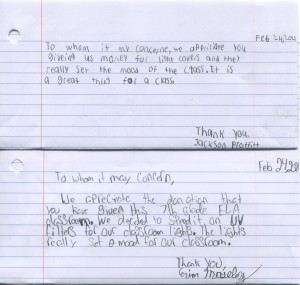 Feb 24,201
To whom it my concerne, we appriciate you
giveing us money for light covers and they
really set the mood of the class. It is
a great thing for a class
Thank you,
Jackson Proffitt
Feb 24,201
To whom it may concern,
We apprecrate the donation that
you have given this 7th grade ELA
classroom. We decided to spend it on UV
filters for our classroom lights. The lights
really set a mood for our classroom.
Thank you,